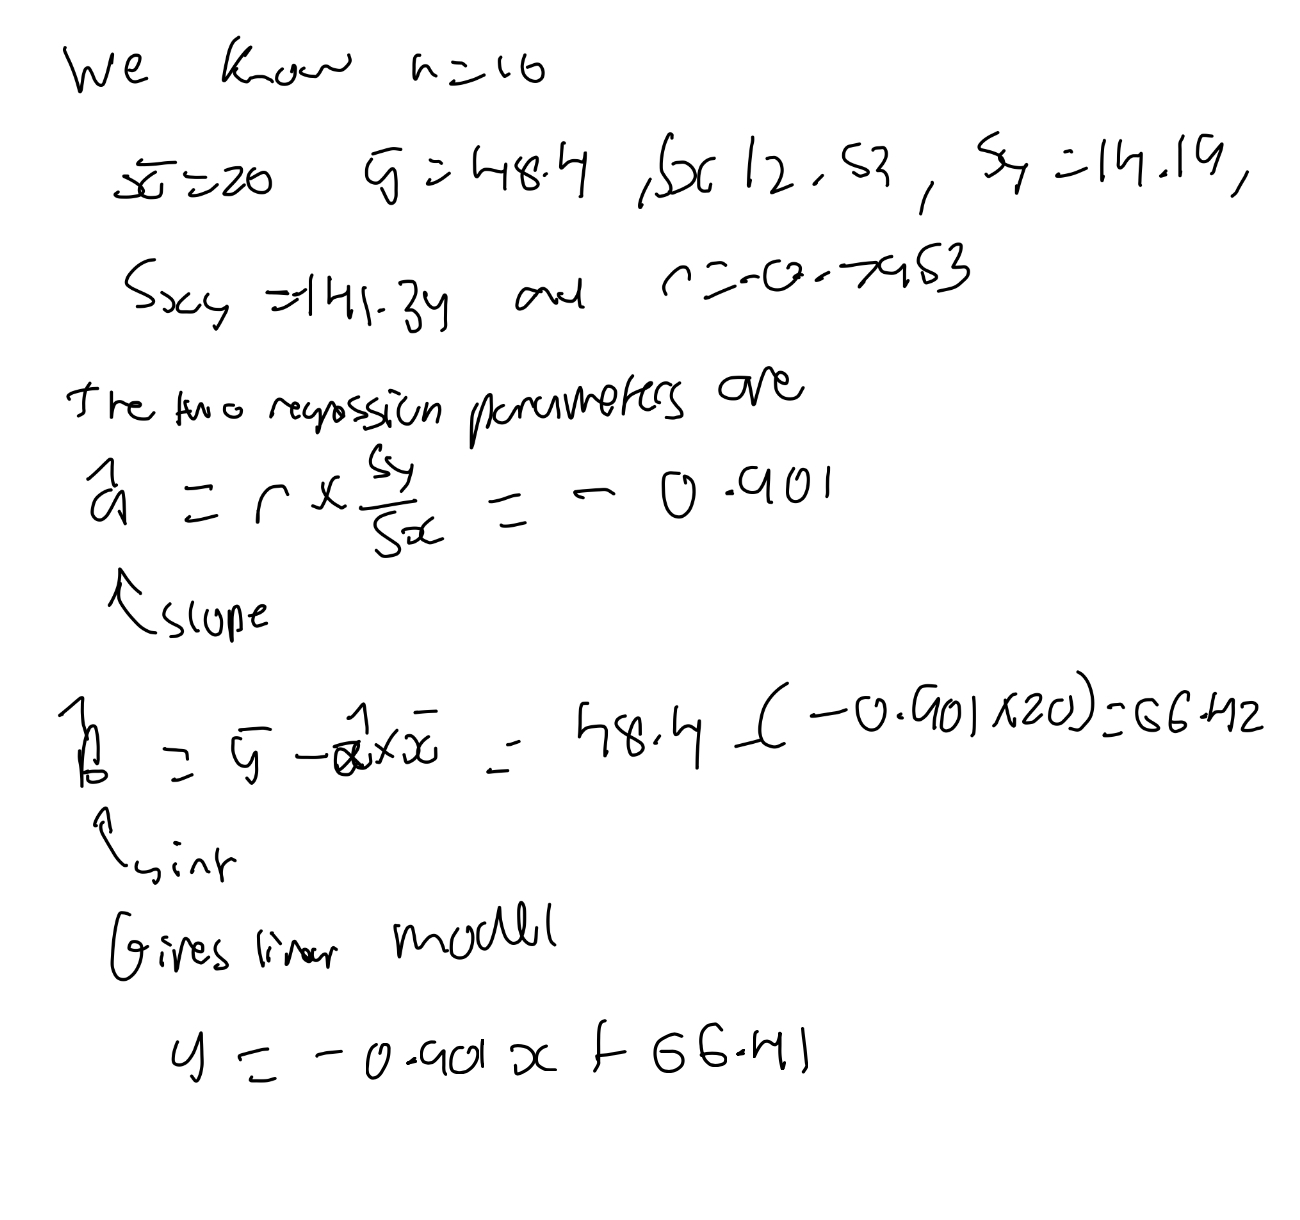 We know n=10
x̄=20 ȳ=48.4, Sx 12.53, Sy=14.19,
Sxy=141.34 and r=-0.7953
The two regression parameters are
â = r × Sy/Sx = - 0.901
↖ slope
b̂ = ȳ - â×x̄ = 48.4 -(-0.901×20)=66.42
↖ y int
Gives linear model
y = - 0.901x + 66.41